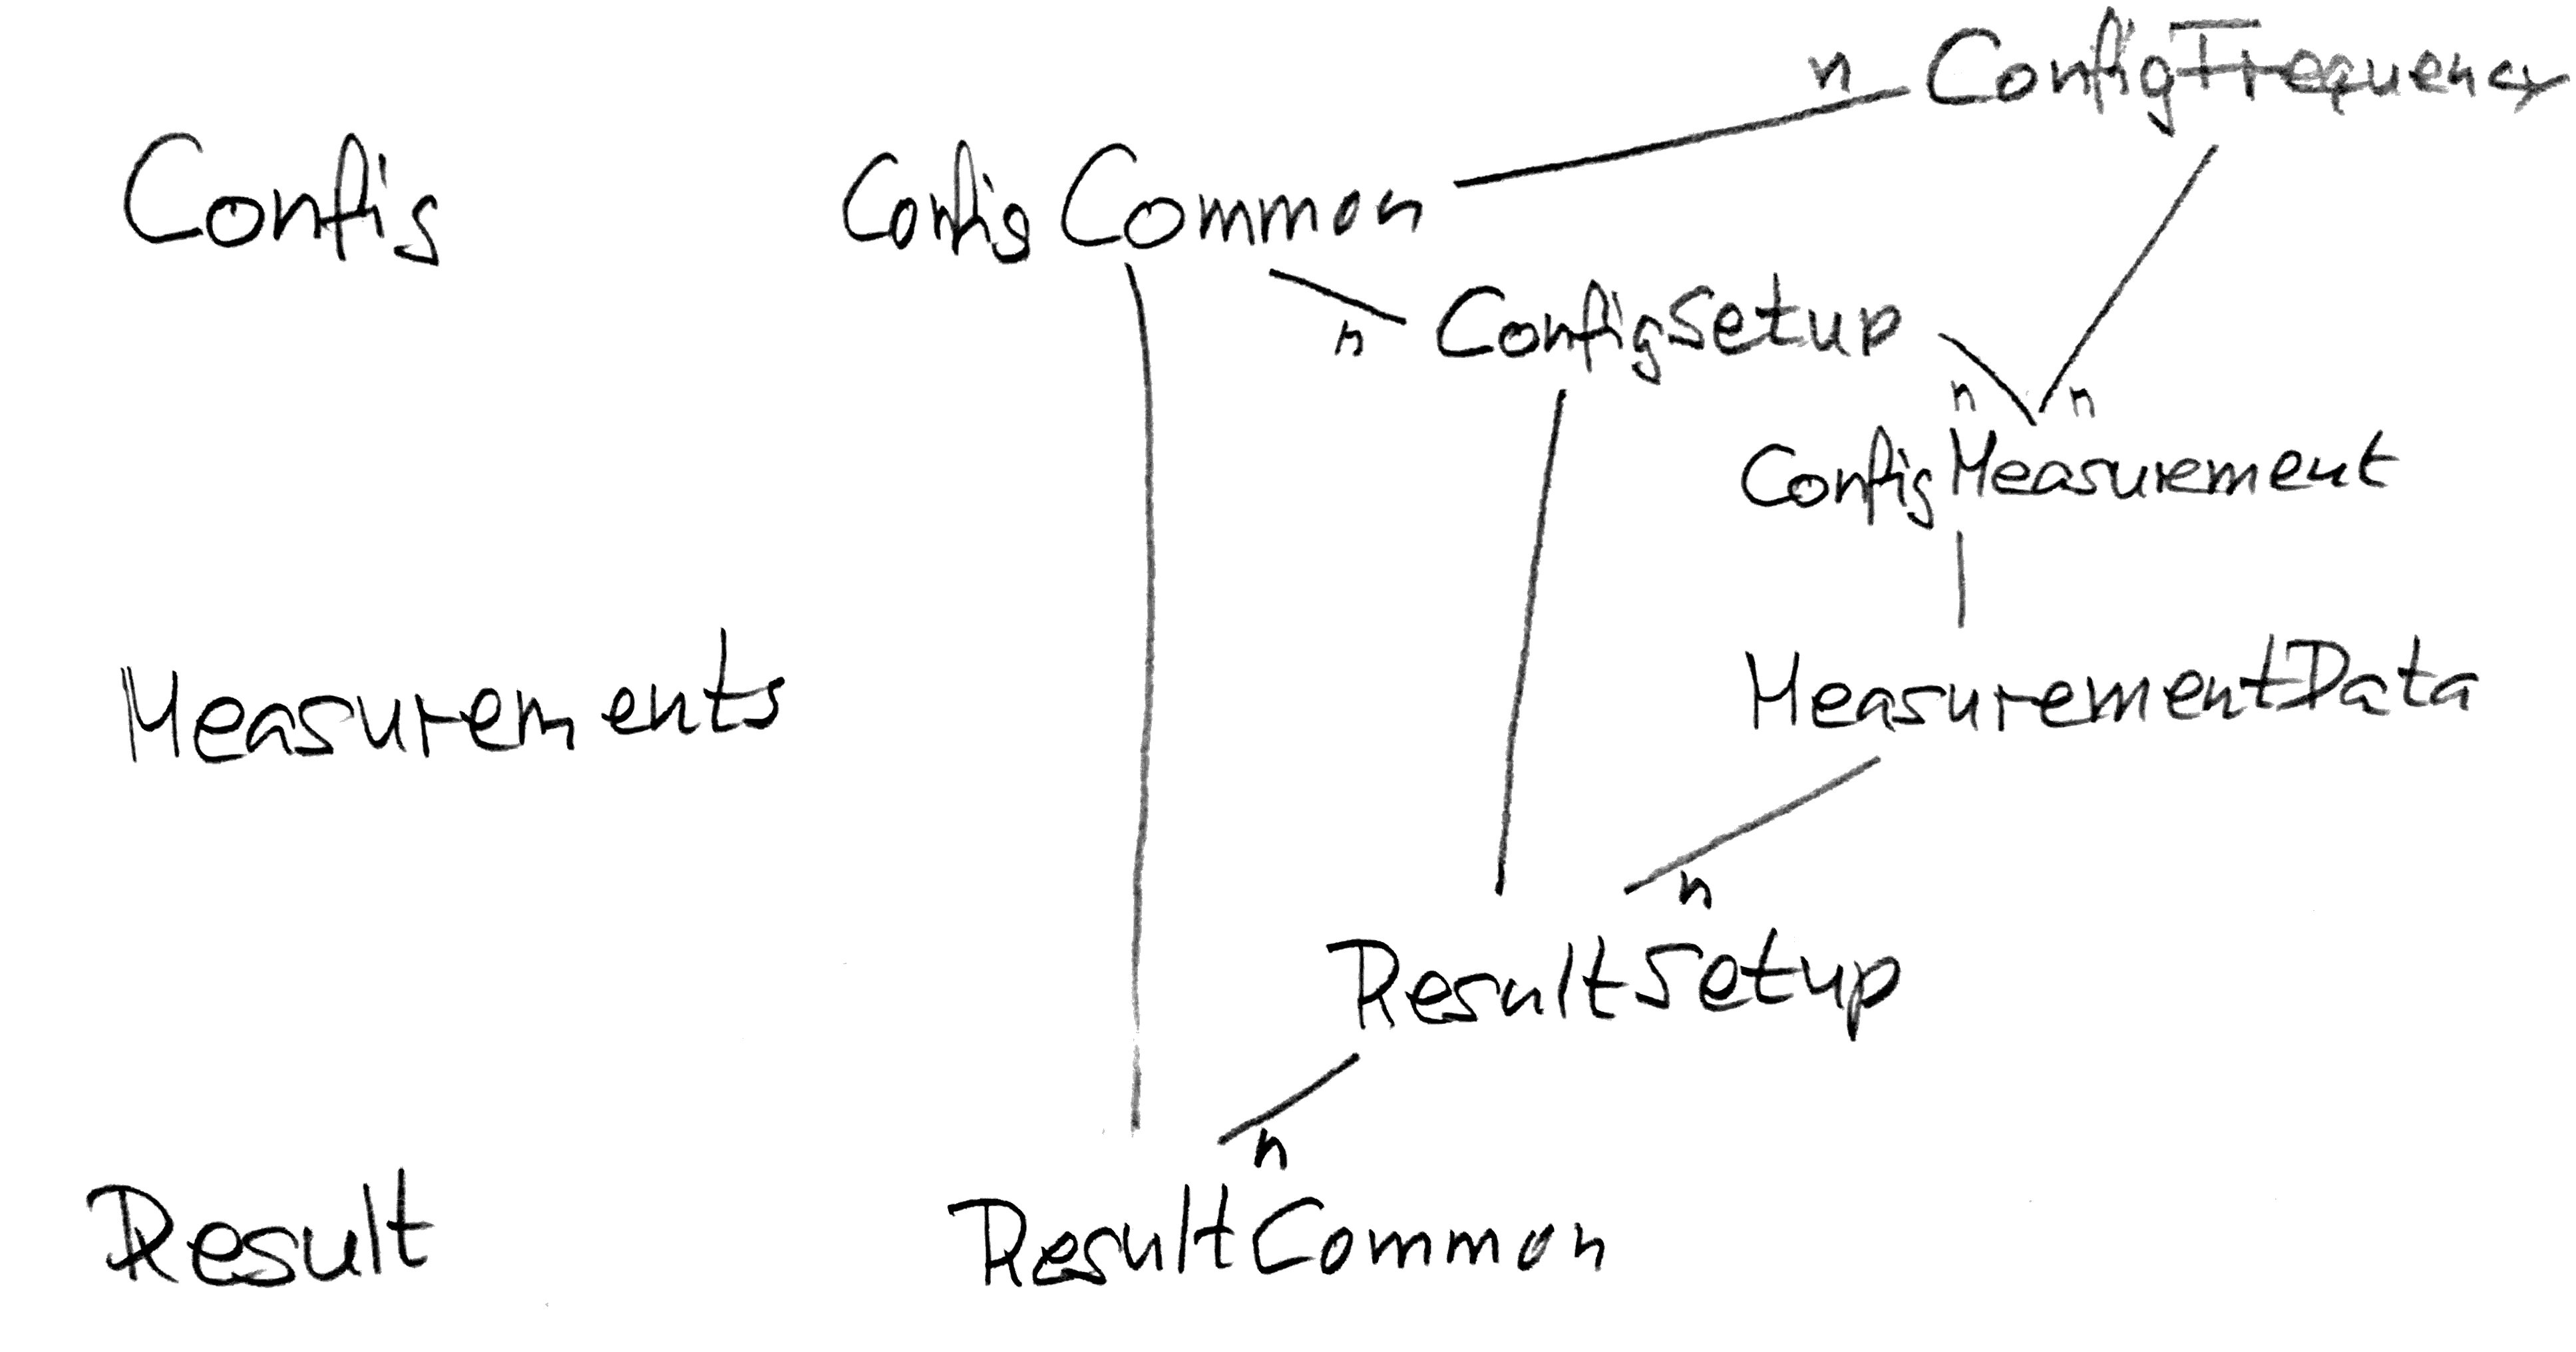 n ConfigFrequency
Config ConfigCommon
n ConfigSetup
n n
ConfigMeasurement
Measurements MeasurementData
n
ResultSetup
n
Result ResultCommon